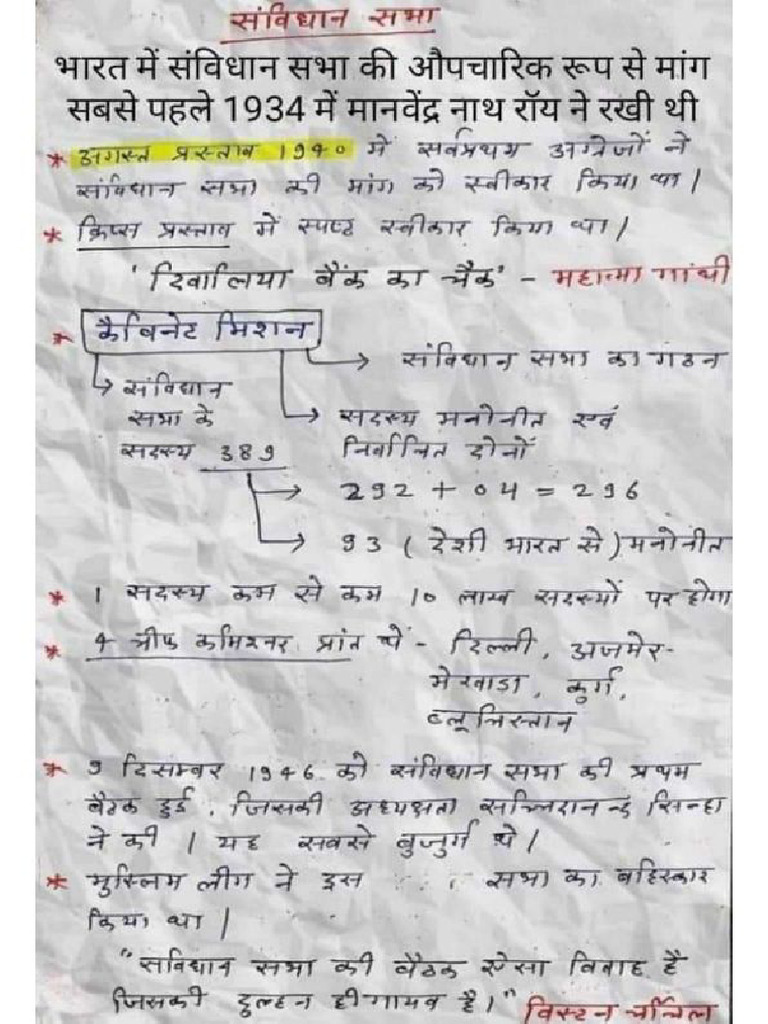 संविधान सभा
भारत में संविधान सभा की औपचारिक रूप से मांग
सबसे पहले 1934 में मानवेंद्र नाथ रॉय ने रखी थी
* अगस्त प्रस्ताव 1940 में सर्वप्रथम अंग्रेजों ने
संविधान सभा की मांग को स्वीकार किया था।
* क्रिप्स प्रस्ताव में स्पष्ट स्वीकार किया था।
'दिवालिया बैंक का चैक' - महात्मा गांधी
* कैबिनेट मिशन
संविधान सभा का गठन
संविधान
सभा के
सदस्य 389
सदस्य मनोनीत एवं
निर्वाचित दोनों
292 + 04 = 296
93 (देशी भारत से) मनोनीत
* 1 सदस्य कम से कम 10 लाख सदस्यों पर होगा
* 4 चीफ कमिश्नर प्रांत थे - दिल्ली, अजमेर-
मेरवाडा, कुर्ग,
ब्लूचिस्तान
* 9 दिसम्बर 1946 को संविधान सभा की प्रथम
बैठक हुई, जिसकी अध्यक्षता सच्चिदानन्द सिन्हा
ने की। यह सबसे बुजुर्ग थे।
* मुस्लिम लीग ने इस सभा का बहिस्कार
किया था।
"संविधान सभा की बैठक ऐसा विवाह है
जिसकी दुल्हन ही गायब है।" विस्टन चर्चिल